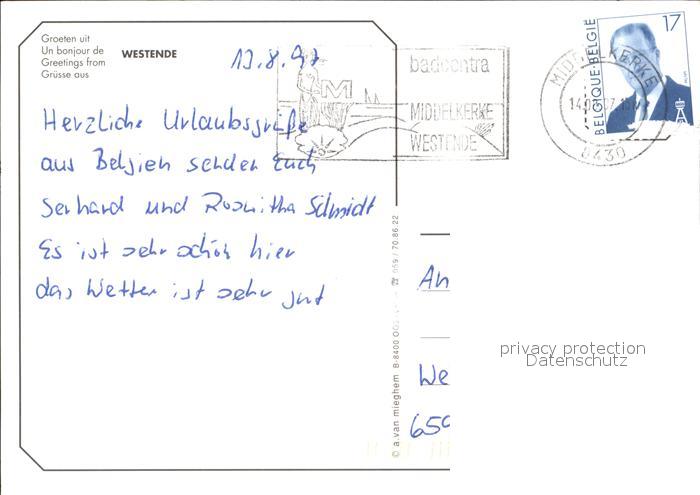 Groeten uit
Un bonjour de
Greetings from
Grüsse aus
WESTENDE
13.8.97
Herzliche Urlaubsgrüße
aus Belgien senden Euch
Gerhard und Roswitha Schmidt
Es ist sehr schön hier
das Wetter ist sehr gut
badcentra
MIDDELKERKE
WESTENDE
MIDDELKERKE
8430
17
BELGIQUE-BELGIË
© a. van mieghem B-8400 ☎ 059 / 70.86.22
An
We
650
privacy protection
Datenschutz